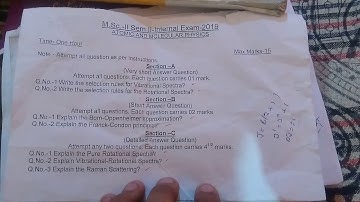 M.Sc.-II Sem II-Internal Exam-2019
ATOMIC AND MOLECULAR PHYSICS
Time- One Hour Max Marks-15
Note - Attempt all question as per instructions.
Section -A
(Very short Answer Question)
Attempt all Questions. Each question carries 01 mark.
Q.No.-1 Write the selection rules for Vibrational Spectra?
Q.No.-2 Write the selection rules for the Rotational Spectra?
Section -B
(Short Answer Question)
Attempt all Questions. Each question carries 02 marks
Q.No.-1 Explain the Born-Oppenheimer approximation?
Q.No.-2 Explain the Franck-Condon principle?
Section -C
(Detailed Answer Question)
Attempt any two Questions. Each question carries 4 marks
Q.No.-1 Explain the Pure Rotational Spectra?
Q.No.-2 Explain Vibrational-Rotational Spectra?
Q.No.-3 Explain the Raman Scattering?